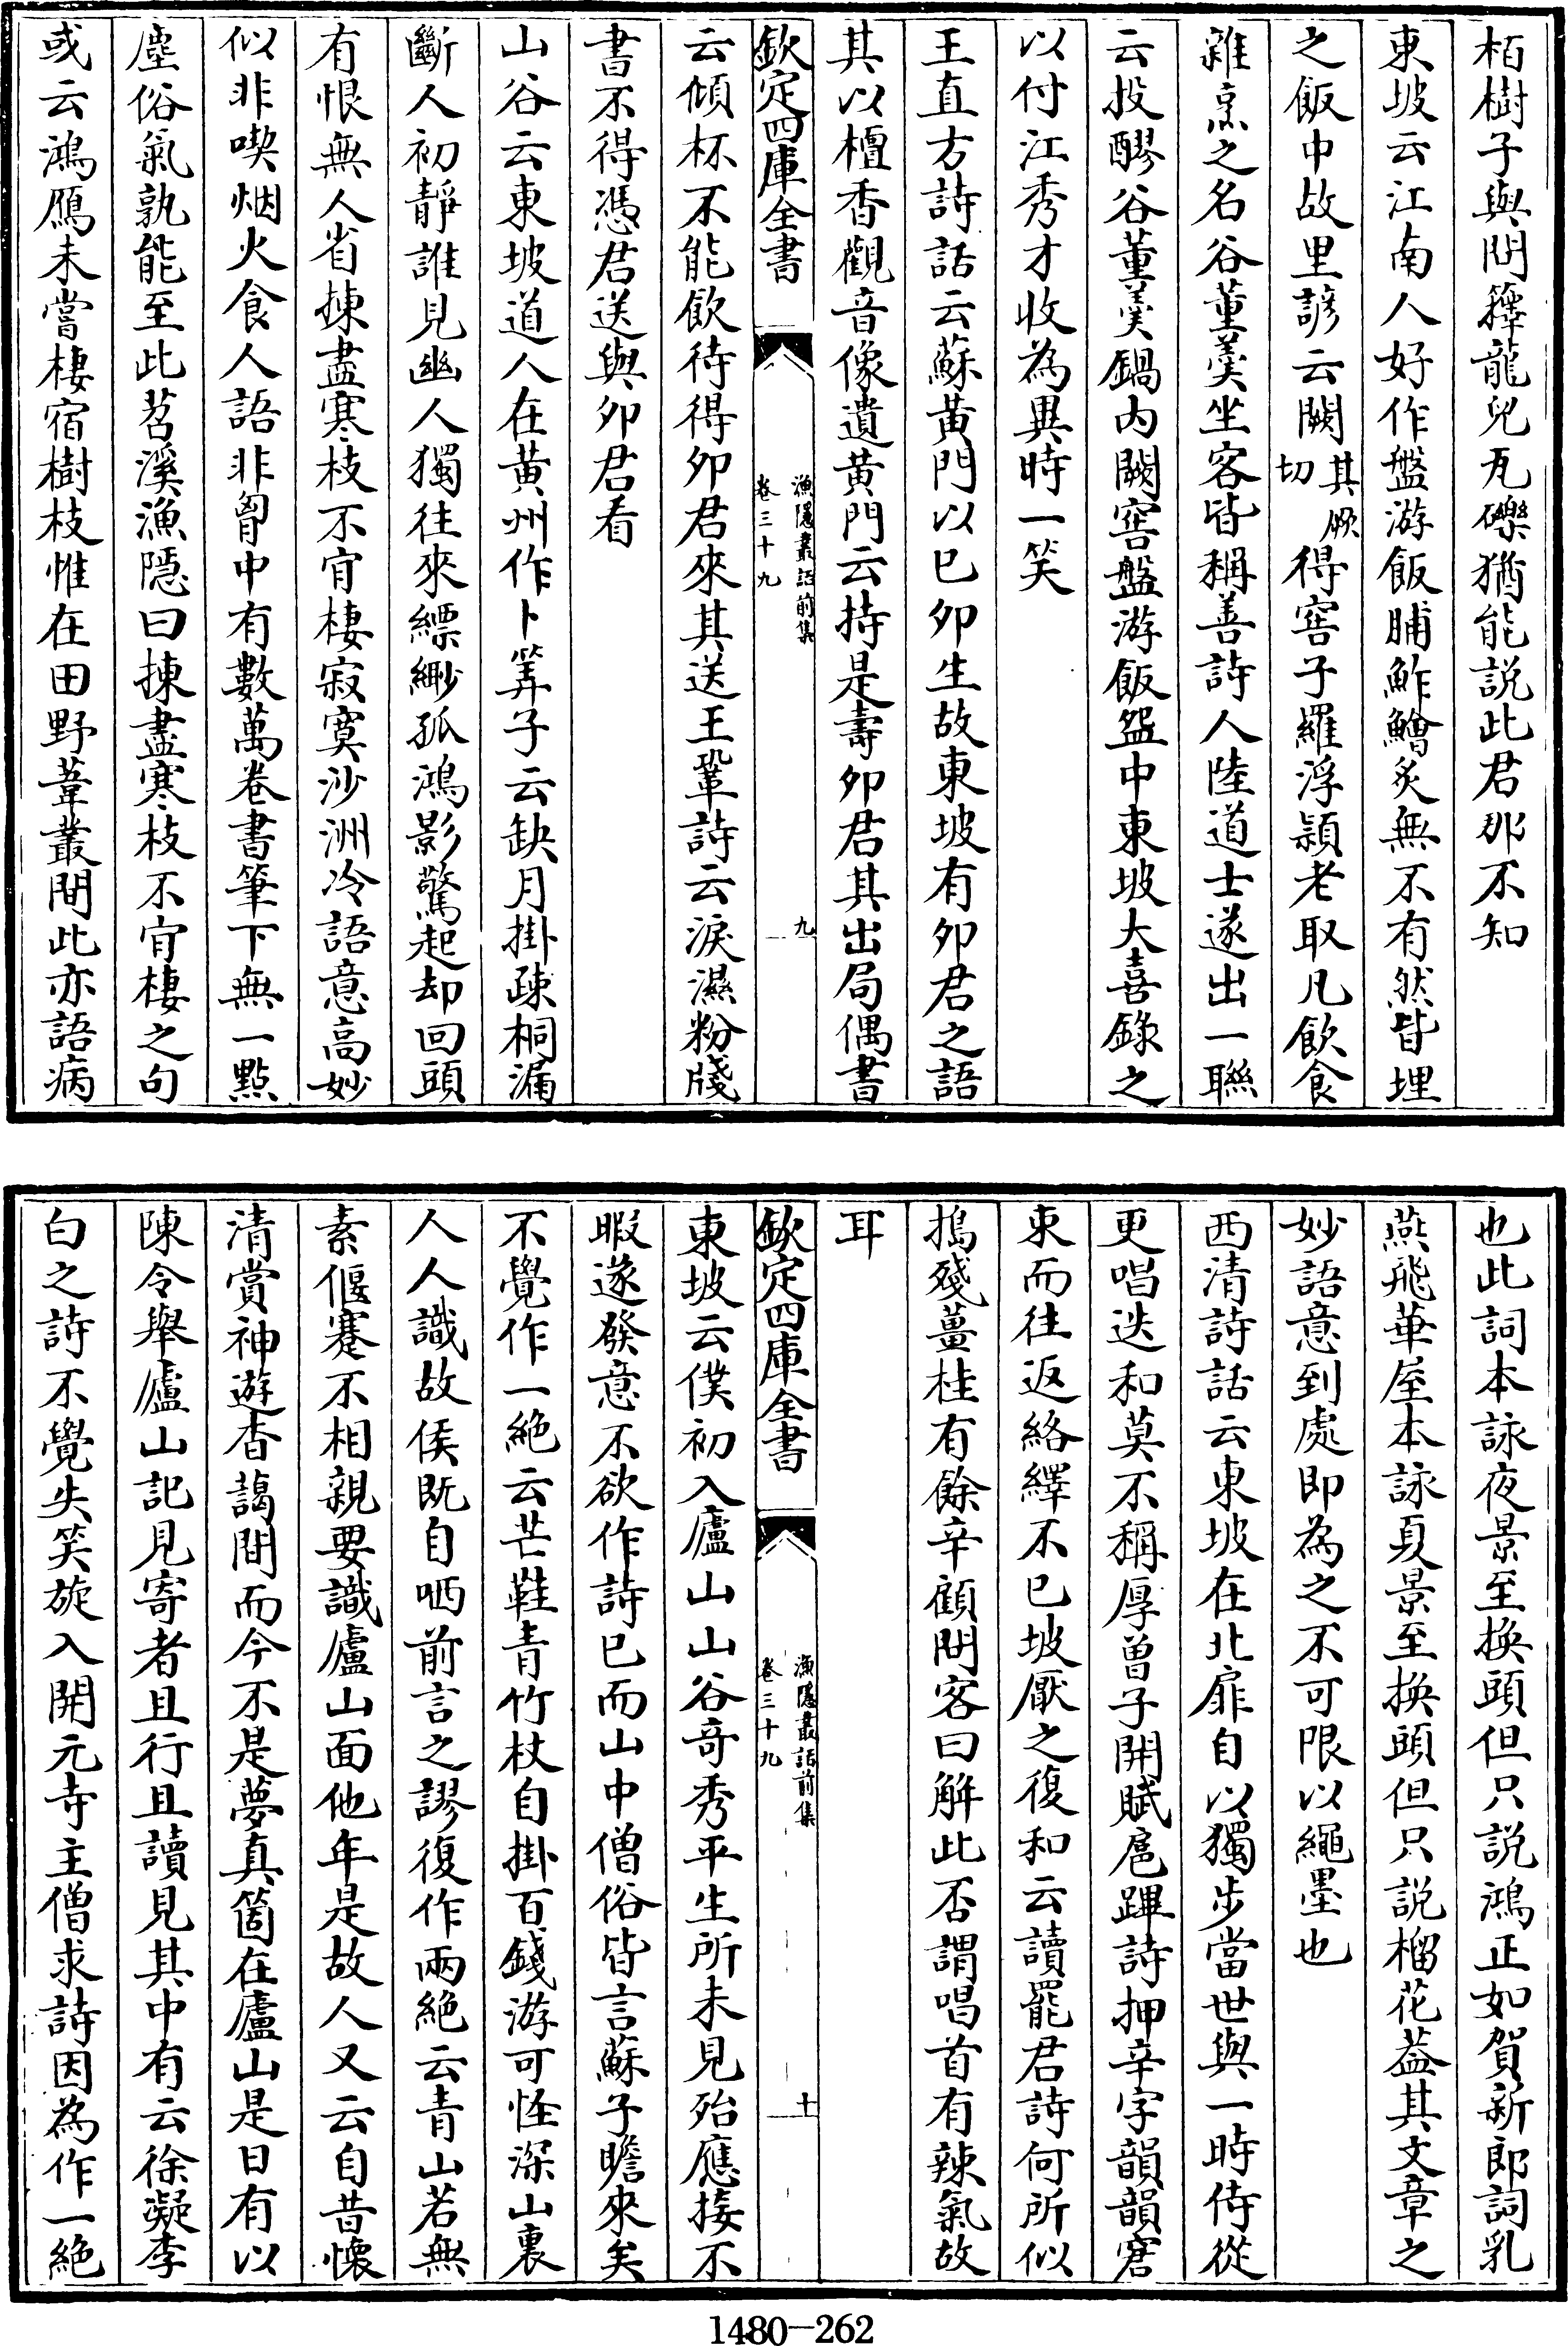 栢樹子與問籜龍兒瓦礫猶能説此君那不知
東坡云江南人好作盤游飯脯鮓鱠炙無不有然皆埋
之飯中故里諺云闕其厥切得窖子羅浮頴老取凡飲食
雜烹之名谷董羮坐客皆稱善詩人陸道士遂出一聯
云投醪谷董羮鍋内闕窖盤游飯盌中東坡大喜錄之
以付江秀才收為異時一笑
王直方詩話云蘇黄門以已卯生故東坡有卯君之語
其以檀香觀音像遺黄門云持是壽卯君其出局偶書
欽定四庫全書
漁隱叢話前集
卷三十九
九
云傾杯不能飲待得卯君來其送王鞏詩云淚濕粉牋
書不得憑君送與卯君看
山谷云東坡道人在黄州作卜筭子云缺月掛疎桐漏
斷人初靜誰見幽人獨往來縹緲孤鴻影驚起却回頭
有恨無人省揀盡寒枝不肎棲寂寞沙洲冷語意高妙
似非喫烟火食人語非胷中有數萬卷書筆下無一點
塵俗氣孰能至此苕溪漁隱曰揀盡寒枝不肎棲之句
或云鴻鴈未嘗棲宿樹枝惟在田野葦叢間此亦語病
也此詞本詠夜景至換頭但只説鴻正如賀新郎詞乳
燕飛華屋本詠夏景至換頭但只説榴花葢其文章之
妙語意到處即為之不可限以繩墨也
西清詩話云東坡在北扉自以獨步當世與一時侍從
更唱迭和莫不稱厚曾子開賦扈蹕詩押辛字韻韻窘
束而往返絡繹不已坡厭之復和云讀罷君詩何所似
搗殘薑桂有餘辛顧問客曰解此否謂唱首有辣氣故
耳
欽定四庫全書
漁隱叢話前集
卷三十九
十
東坡云僕初入廬山山谷奇秀平生所未見殆應接不
暇遂發意不欲作詩已而山中僧俗皆言蘇子瞻來矣
不覺作一絶云芒鞋青竹杖自掛百錢游可怪深山裏
人人識故侯既自哂前言之謬復作兩絶云青山若無
素偃蹇不相親要識廬山面他年是故人又云自昔懷
清賞神遊杳藹間而今不是夢真箇在廬山是日有以
陳令舉廬山記見寄者且行且讀見其中有云徐凝李
白之詩不覺失笑旋入開元寺主僧求詩因為作一絶
1480—262